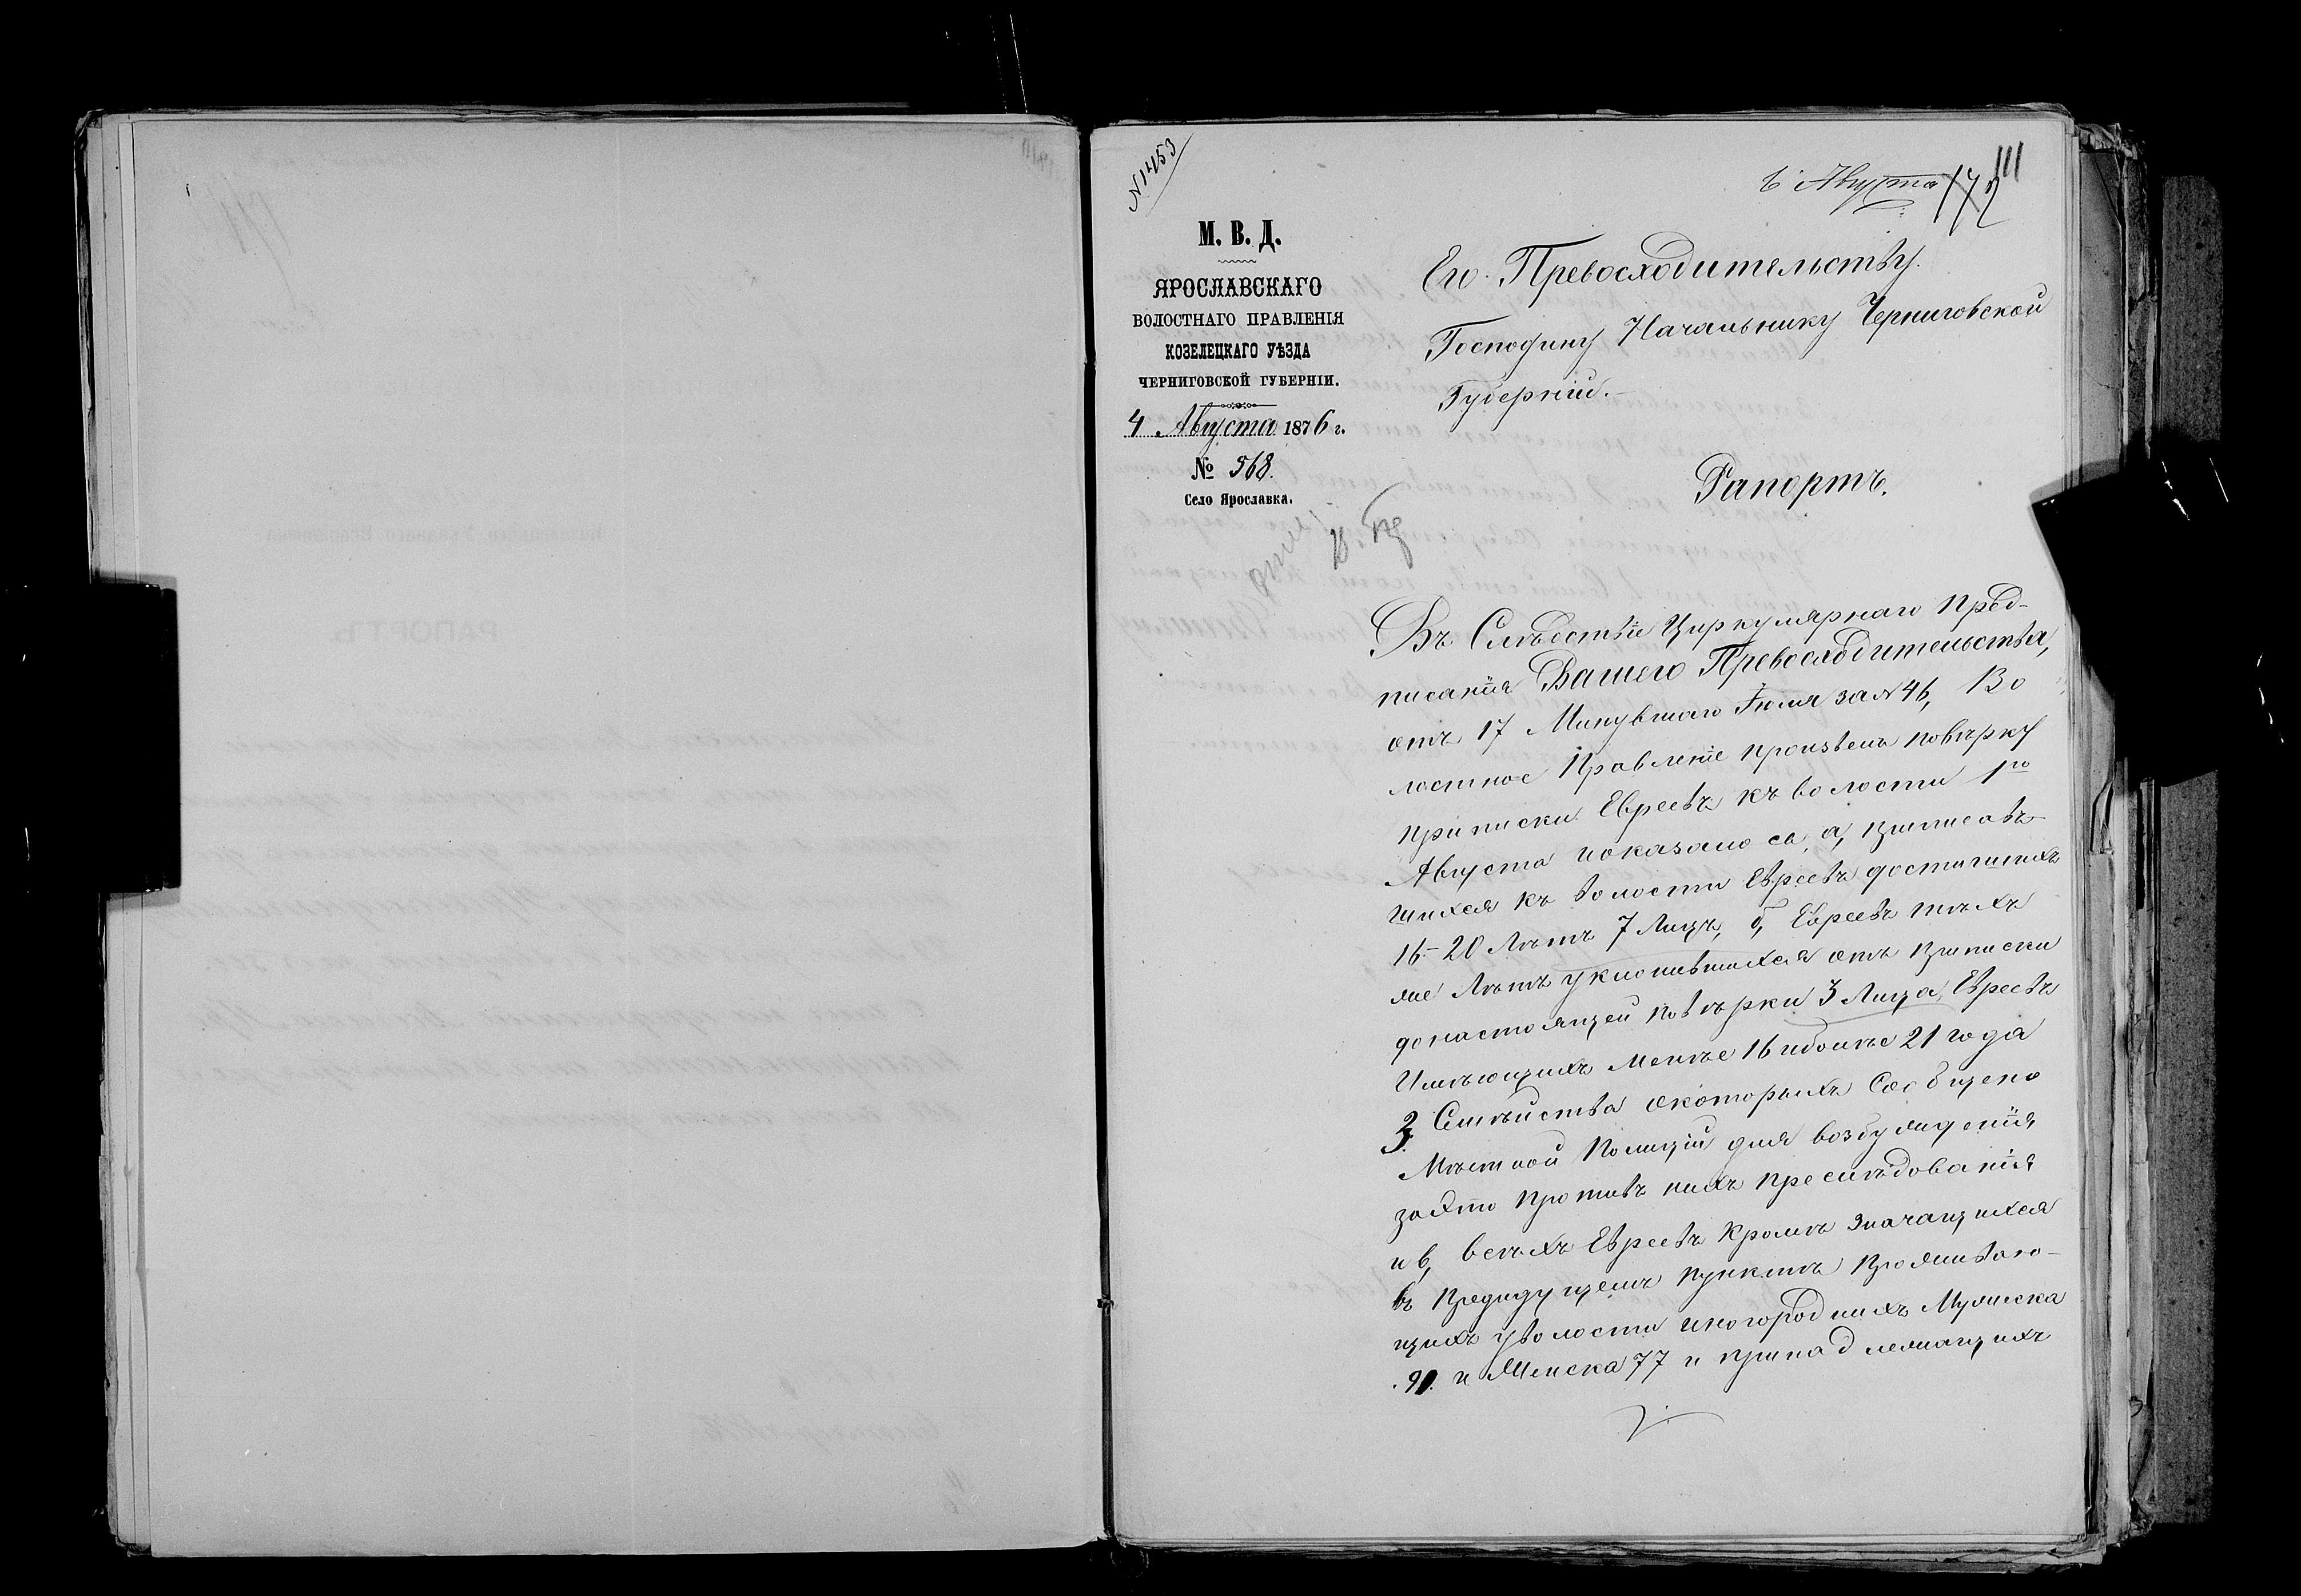 N 1453
6 Августа
111
М. В. Д.
ЯРОСЛАВСКАГО
ВОЛОСТНАГО ПРАВЛЕНІЯ
КОЗЕЛЕЦКАГО УѢЗДА
ЧЕРНИГОВСКОЙ ГУБЕРНІИ.
4 Августа 1876 г.
№ 568.
Село Ярославка.
Его Превосходительству.
Господину Начальнику Черниговской
Губерніи.
Рапортъ.
Въ Слѣдствіи Циркулярнаго Пред-
писанія Вашего Превосходительства,
отъ 17 Минувшаго Іюля за N 46, Во
лостное Правленіе произвела повѣрку
приписки Евреевъ къ волости 1го
Августа показалось, а, приписав-
шихся къ волости Евреевъ достигшихъ
16-20 лѣтъ 7 Лицъ, б, Евреевъ тѣхъ
же Лѣтъ уклонившихся отъ приписки
до настоящей повѣрки 3 Лица, Евреевъ
Имѣющихъ Менѣе 16 и болѣе 21 года
3 Семѣйства о которыхъ Сообщено
Мѣстной Полиціи для возбужденія
за это противъ нихъ преслѣдованія
и в, всѣхъ Евреевъ Кромѣ значащихся
въ Предидущемъ пунктѣ проживаю-
щихъ у волости иногороднихъ Мужеска
91. и Женска 77 и принадлежащихъ